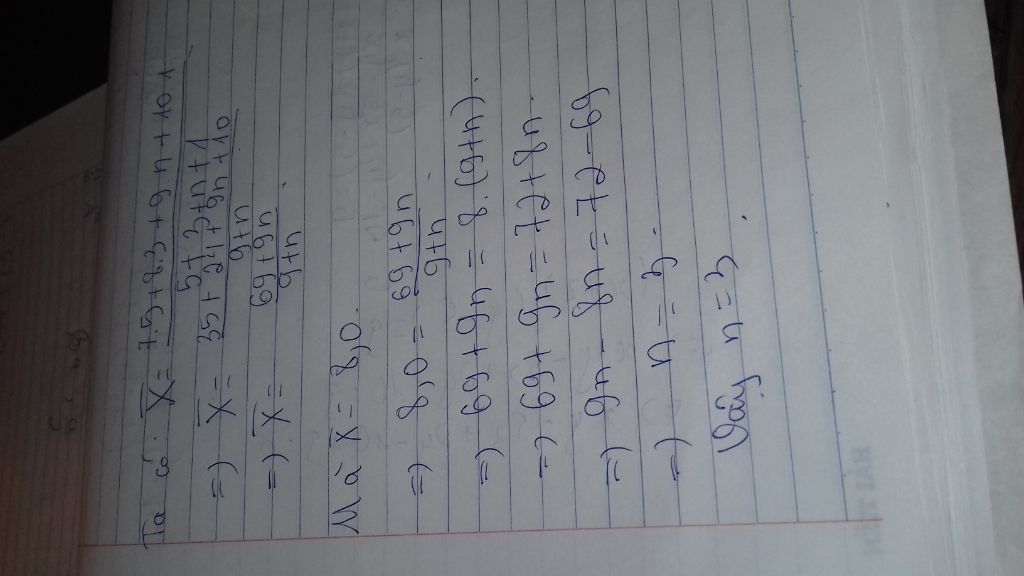 Ta có: X̄ = 7.5+8.3+9n+10.1
5+3+n+1
=) X̄ = 35+24+9n+10
9+n
=) X̄ = 69+9n
9+n
Mà X̄ = 8,0.
=) 8,0 = 69+9n
9+n
=) 69+9n = 8.(9+n).
=) 69+9n = 72+8n.
=) 9n-8n = 72-69
=) n = 3.
Vậy n = 3.